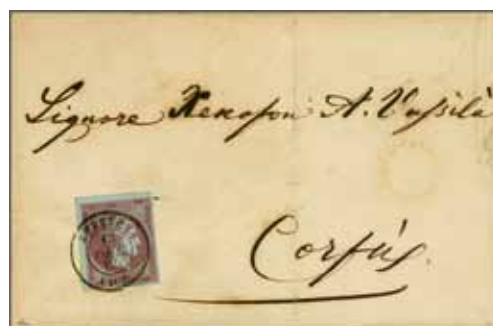 Signore Xenofon A. Vassilà
Corfù.